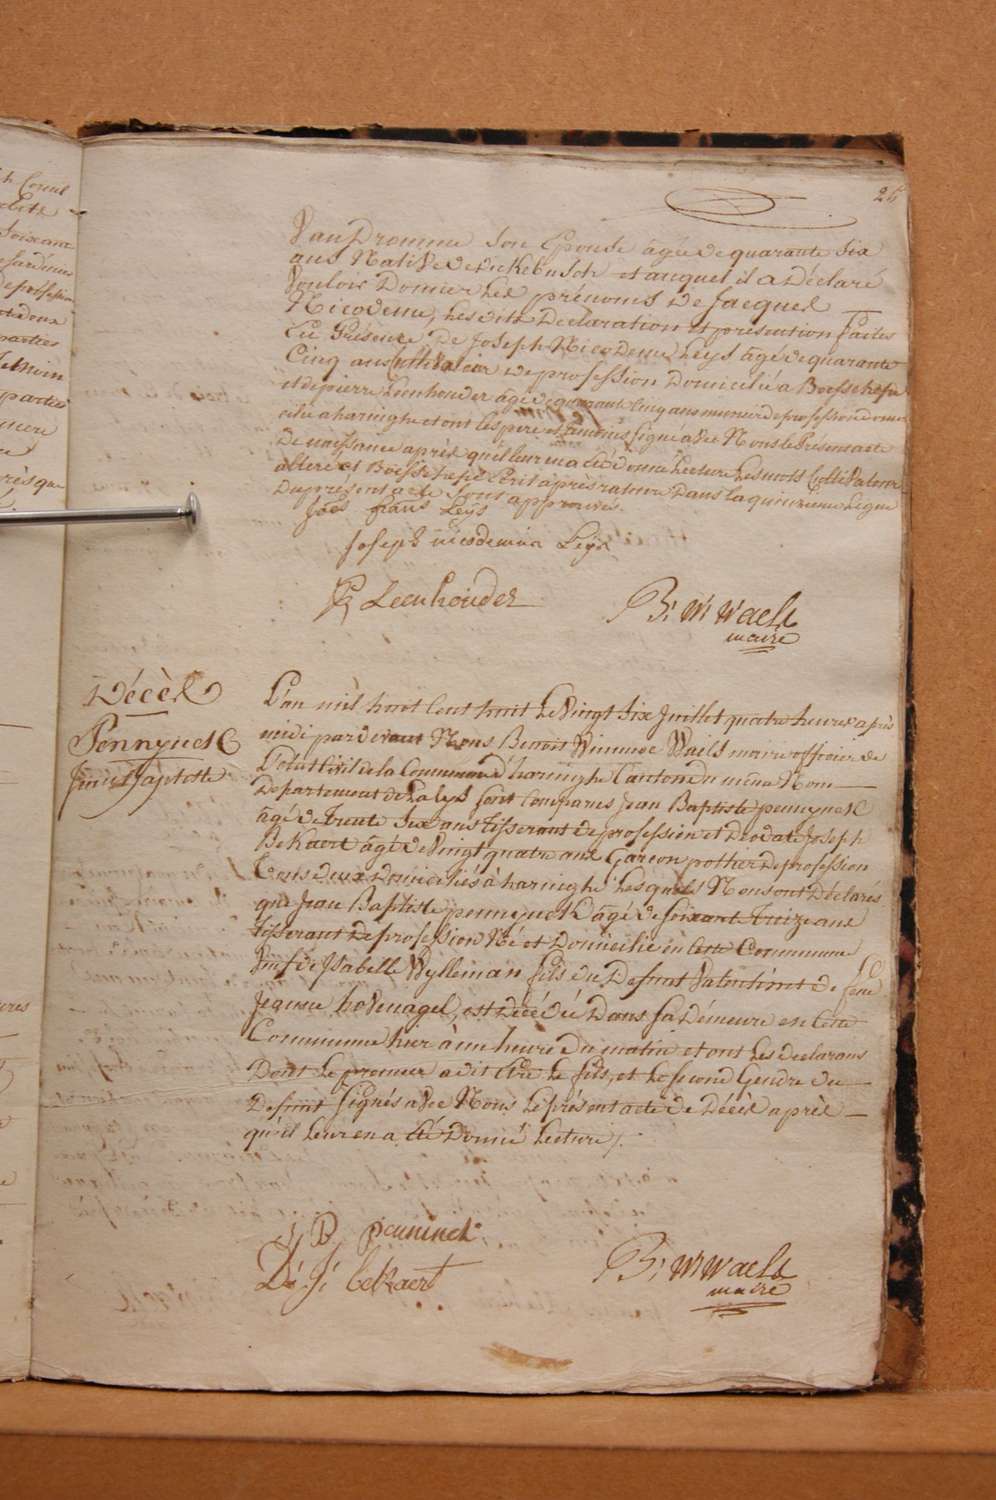 26
Van Dromme son Epouse âgée de quarante six
ans Native de vickebusch et auquel il a Déclaré
Vouloir Donner les prénoms de Jacques
Nicodeme, Les dits Declaration et présention faites
En Présence de Joseph Nicodeme Leys âgé de quarante
Cinq ans de profession Domicilié a Boesschepe
et de pierre Leenhouder âgé de quarante cinq ans de profession
cilié a haringhe et ont les pere et temoins signé avec Nous le Présent acte
De naissance après qu'il leur en a été donné Lecture Les mots Cultivateur
altéré et Boesschepe Ecrit après rature Dans la quinzieme Ligne
Du présent acte sont approuvés.
Joes frans Leys
Joseph nicodemus Leys
P Leenhouder
B: W: Waels
maire
Décès
Pennynck
Jean Baptiste
L'an mil huit Cent huit le Vingt six Juillet quatre heures après
midi par devant Nous Benoit Winnoc Waels maire officier de
L'état Civil de la Commune d'haringhe Canton du même Nom
Departement de la Lys sont Comparus Jean Baptiste pennynck
âgé de Trente Six ans Tisserant de profession et Deodate Joseph
BeKaert âgé de Vingt quatre ans Garçon pottier De profession
Tous deux Domiciliés à haringhe Lesquels Nous ont Déclarés
que Jean Baptiste pennynck âgé de soixante Treize ans
Tisserant de profession Né et Domicilié en Cette Commune
Veuf de Isabelle Wylleman fils du Defunt Valentin et de feue
Jeanne hovenagel, est Décédé Dans sa Démeure en Cette
Commune hier à un heure du matin et ont les declarans
Dont le premier a dit être le fils, et le second Gendre du
Defunt signés avec Nous le présent acte de Décès après
qu'il leur en a été Donné Lecture.
J B penninck
De J: beKaert
B: W: Waels
maire